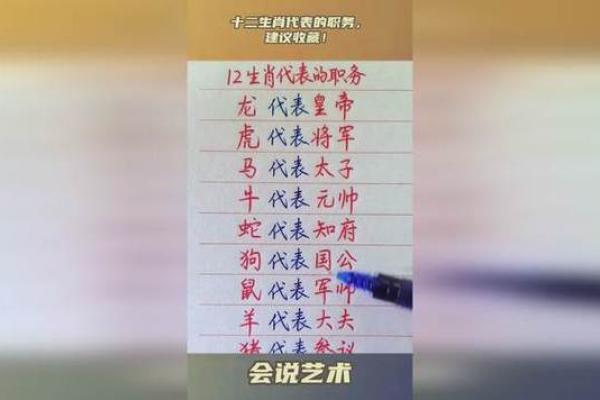 十二生肖代表的职务，
建议收藏！
12生肖代表的职务
龙代表皇帝
虎代表将军
马代表太子
牛代表元帅
蛇代表知府
狗代表国公
鼠代表军师
羊代表大夫
猪代表参议
会说艺术